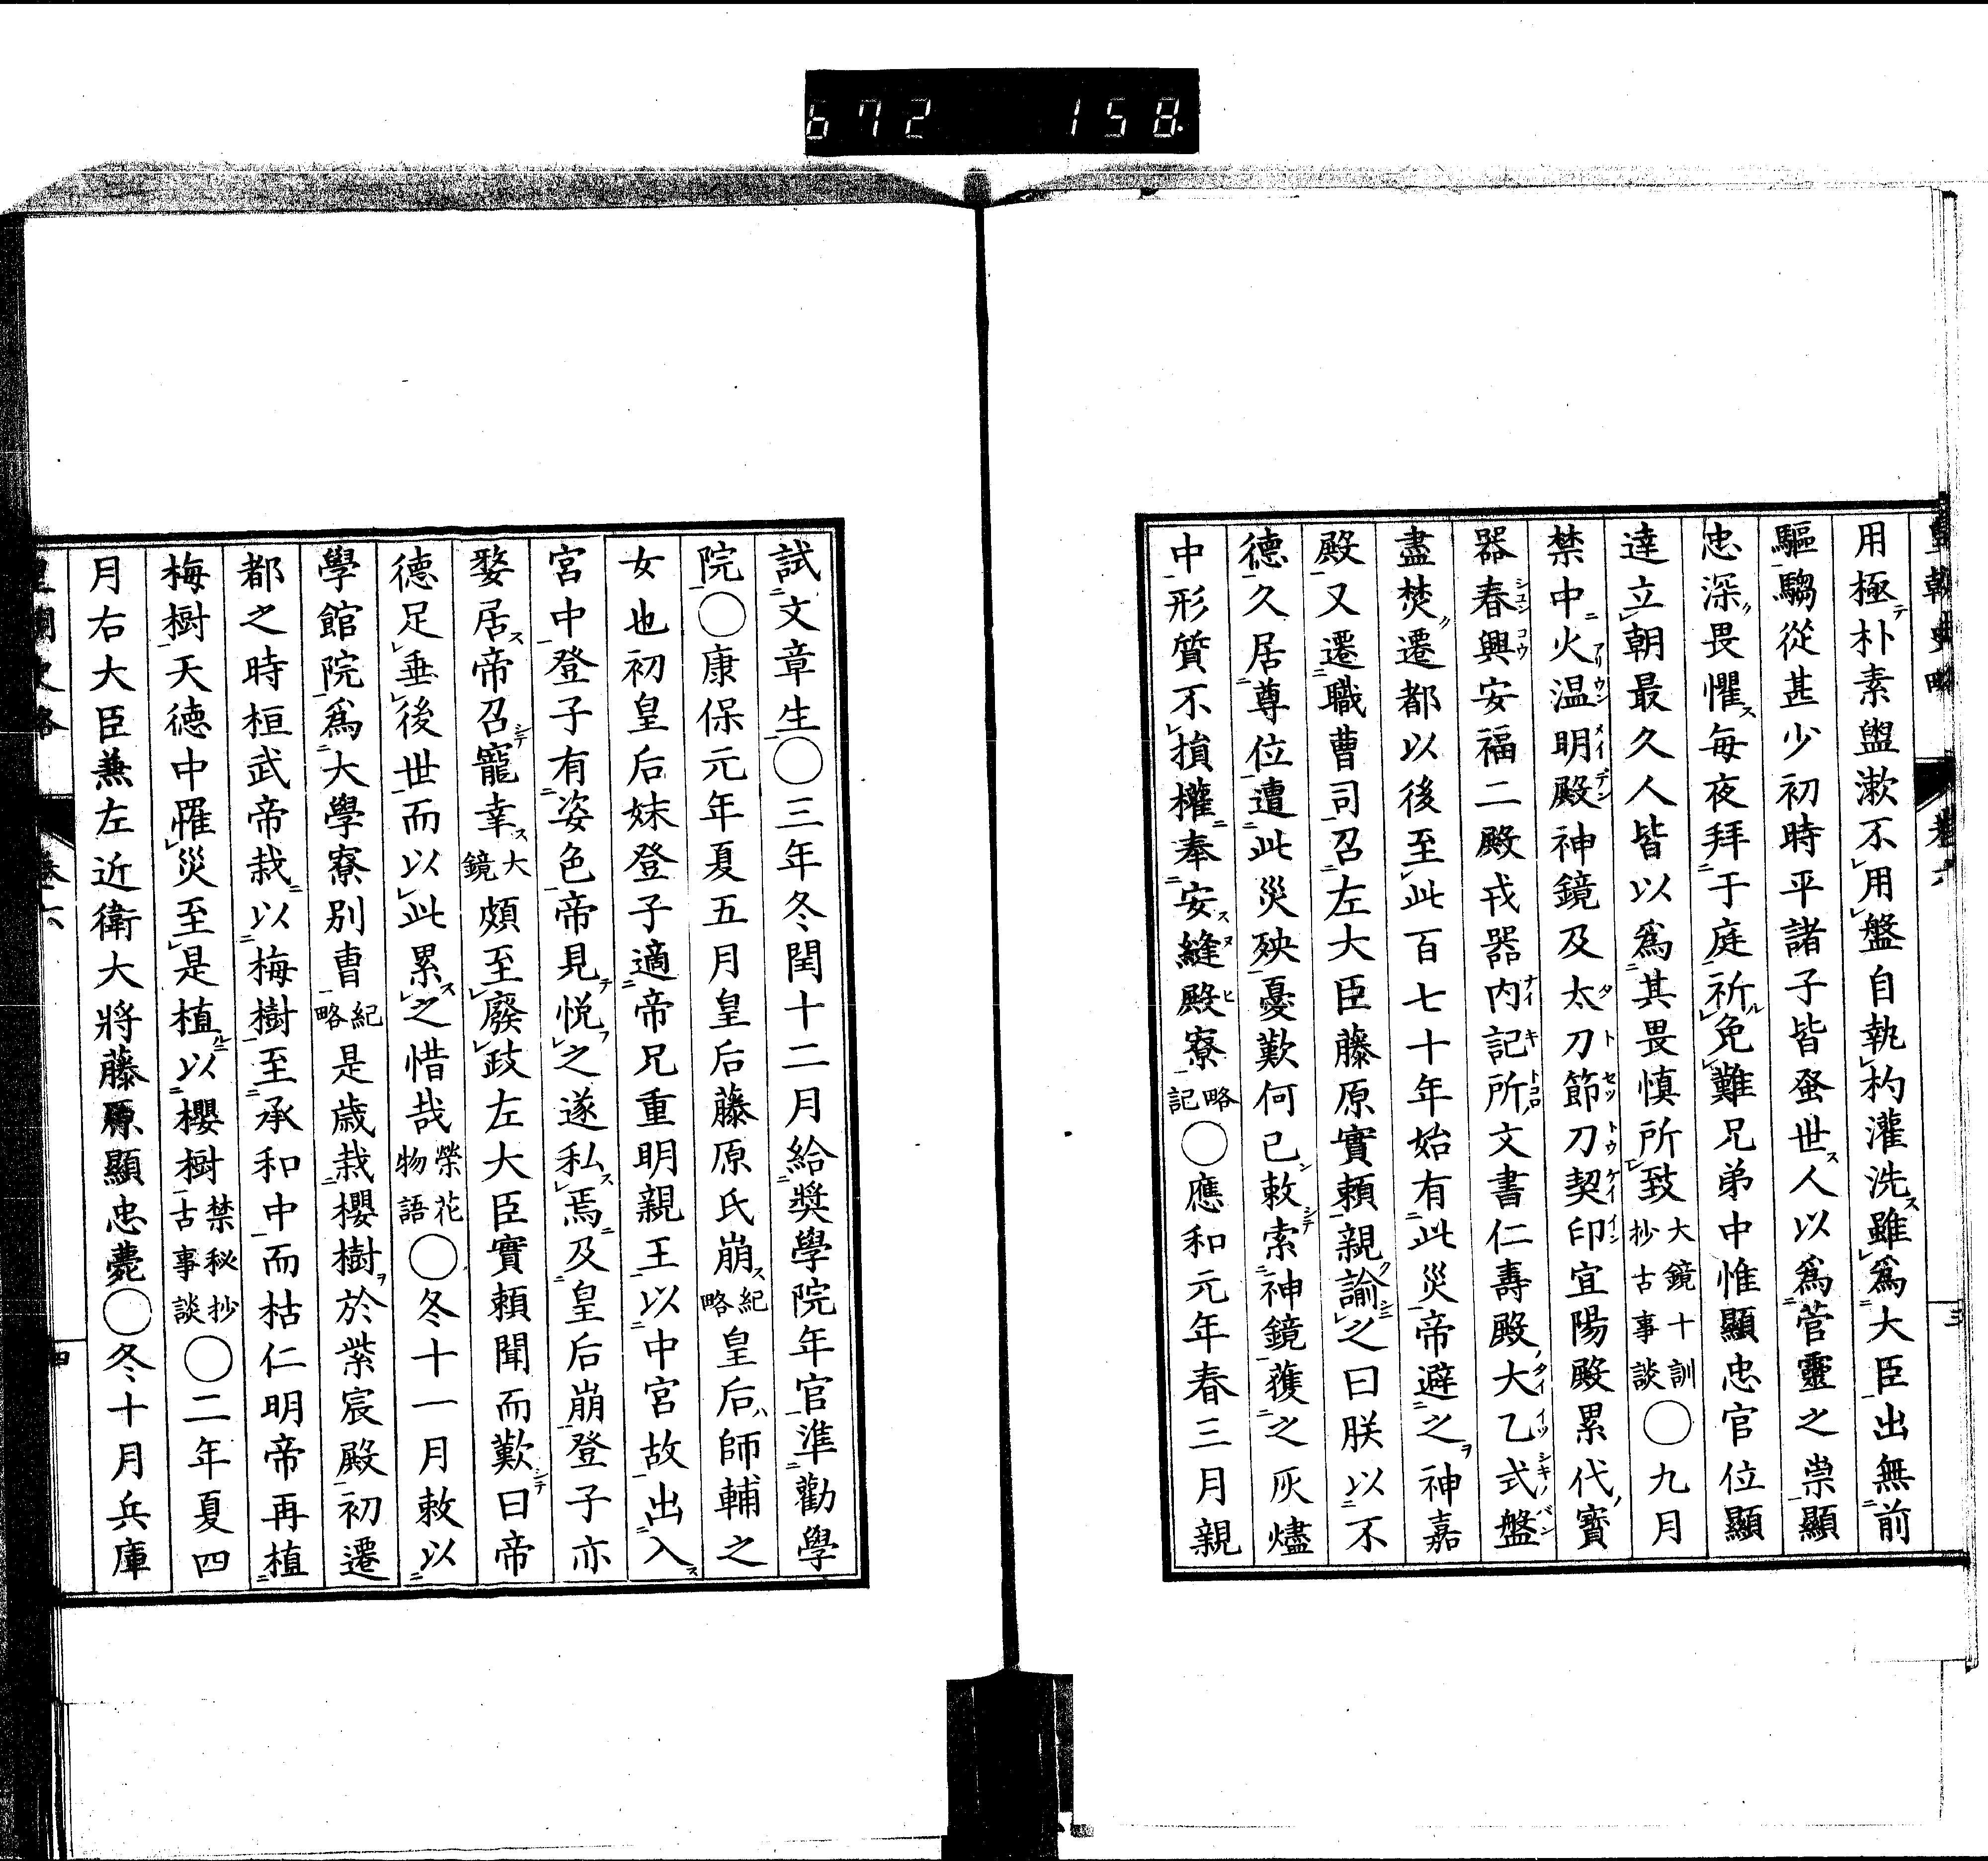 672 158
皇朝史略 卷六 三
用極朴素盥漱不用盤自執杓灌洗雖爲大臣出無前
驅騶從甚少初時平諸子皆蚤世人以爲菅靈之祟顯
忠深畏懼每夜拜于庭祈免難兄弟中惟顯忠官位顯
達立朝最久人皆以爲其畏慎所致大鏡十訓抄古事談〇九月
禁中火温明殿神鏡及太刀節刀契印宜陽殿累代寳
器春興安福二殿戎器内記所文書仁壽殿大乙式盤
盡焚遷都以後至此百七十年始有此災帝避之神嘉
殿又遷職曹司召左大臣藤原實頼親諭之曰朕以不
德久居尊位遭此災殃憂歎何已敕索神鏡獲之灰燼
中形質不損權奉安縫殿寮略記〇應和元年春三月親
試文章生〇三年冬閏十二月給奬學院年官準勸學
院〇康保元年夏五月皇后藤原氏崩紀略皇后師輔之
女也初皇后妹登子適帝兄重明親王以中宮故出入
宮中登子有姿色帝見悦之遂私焉及皇后崩登子亦
嫠居帝召寵幸大鏡頗至廢政左大臣實頼聞而歎曰帝
德足垂後世而以此累之惜哉榮花物語〇冬十一月敕以
學館院爲大學寮別曹紀略是歳栽櫻樹於紫宸殿初遷
都之時桓武帝栽以梅樹至承和中而枯仁明帝再植
梅樹天德中罹災至是植以櫻樹禁秘抄古事談〇二年夏四
月右大臣兼左近衛大將藤原顯忠薨〇冬十月兵庫
皇朝史略 卷六 四